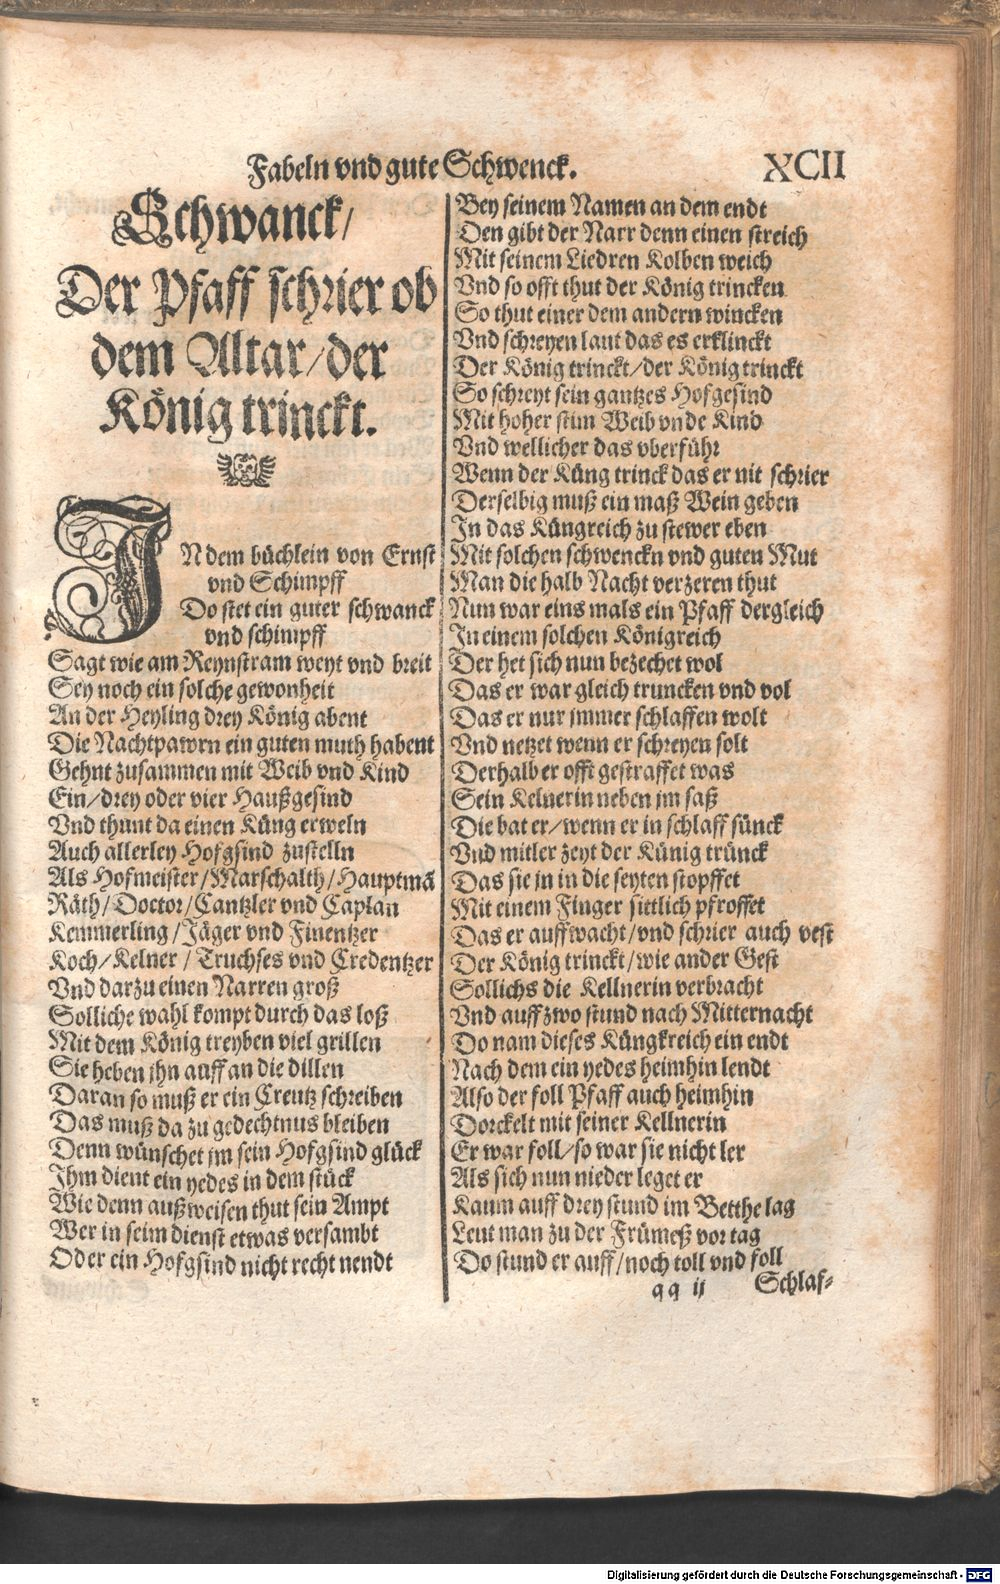 Fabeln vnd gute Schwenck. XCII
Schwanck/
Der Pfaff schrier ob
dem Altar/der
König trinckt.
IN dem büchlein von Ernst
vnd Schimpff
Do stet ein guter schwanck
vnd schimpff
Sagt wie am Reynstram weyt vnd breit
Sey noch ein solche gewonheit
An der Heyling drey König abent
Die Nachtpawrn ein guten muth habent
Gehnt zusammen mit Weib vnd Kind
Ein/drey oder vier Haußgesind
Vnd thunt da einen Küng erweln
Auch allerley Hofgsind zustelln
Als Hofmeister/Marschalth/Hauptmā
Räth/Doctor/Cantzler vnd Caplan
Kemmerling/Jäger vnd Finentzer
Koch/Kelner/Truchses vnd Credentzer
Vnd darzu einen Narren groß
Solliche wahl kompt durch das loß
Mit dem König treyben viel grillen
Sie heben jhn auff an die dillen
Daran so muß er ein Creutz schreiben
Das muß da zu gedechtnus bleiben
Denn wünschet jm sein Hofgsind glück
Jhm dient ein yedes in dem stück
Wie denn außweisen thut sein Ampt
Wer in seim dienst etwas versambt
Oder ein Hofgsind nicht recht nendt
Bey seinem Namen an dem endt
Den gibt der Narr denn einen streich
Mit seinem Liedren Kolben weich
Vnd so offt thut der König trincken
So thut einer dem andern wincken
Vnd schreyen laut das es erklinckt
Der König trinckt/der König trinckt
So schreyt sein gantzes Hofgesind
Mit hoher stim Weib vnde Kind
Vnd wellicher das vberführ
Wenn der Küng trinck das er nit schrier
Derselbig muß ein maß Wein geben
In das Küngreich zu stewer eben
Mit solchen schwenckn vnd guten Mut
Man die halb Nacht verzeren thut
Nun war eins mals ein Pfaff dergleich
In einem solchen Königreich
Der het sich nun bezechet wol
Das er war gleich truncken vnd vol
Das er nur jmmer schlaffen wolt
Vnd netzet wenn er schreyen solt
Derhalb er offt gestraffet was
Sein Kelnerin neben jm saß
Die bat er/wenn er in schlaff sünck
Vnd mitler zeyt der Künig trünck
Das sie jn in die seyten stopffet
Mit einem Finger sittlich pfroffet
Das er auffwacht/vnd schrier auch vest
Der König trinckt/wie ander Gest
Sollichs die Kellnerin verbracht
Vnd auff zwo stund nach Mitternacht
Do nam dieses Küngkreich ein endt
Nach dem ein yedes heimhin lendt
Also der foll Pfaff auch heimhin
Dorckelt mit seiner Kellnerin
Er war foll/so war sie nicht ler
Als sich nun nieder leget er
Kaum auff drey stund im Betthe lag
Leut man zu der Frümeß vor tag
Do stund er auff/noch toll vnd foll
qq ij Schlaf-
Digitalisierung gefördert durch die Deutsche Forschungsgemeinschaft - DFG